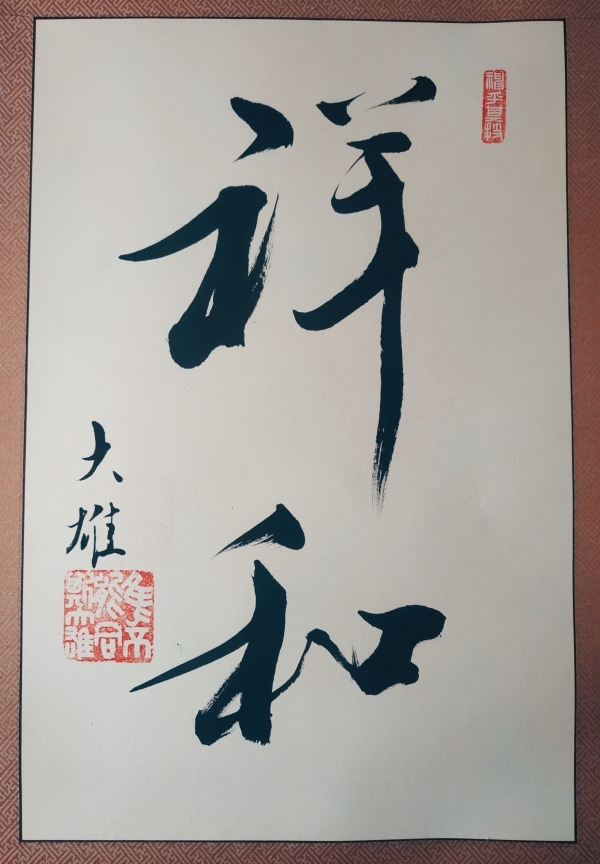 祥和
大雄